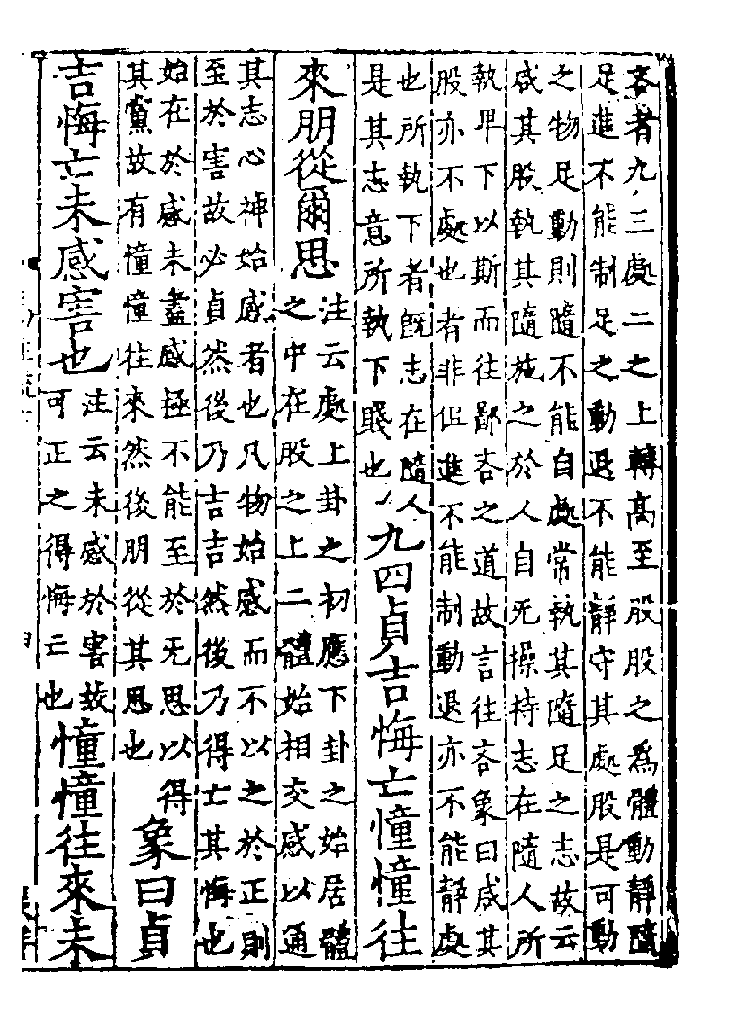 吝者九三處二之上轉高至股股之為體動靜隨
足進不能制足之動退不能靜守其處股是可動
之物足動則隨不能自處常執其隨足之志故云
咸其股執其隨施之於人自无操持志在隨人所
執卑下以斯而往鄙吝之道故言往吝象曰咸其
股亦不處也者非但進不能制動退亦不能靜處
也所執下者既志在隨人
是其志意所執下賤也
九四貞吉悔亡憧憧往
來朋從爾思
注云處上卦之初應下卦之始居體
之中在股之上二體始相交感以通
其志心神始感者也凡物始感而不以之於正則
至於害故必貞然後乃吉吉然後乃得亡其悔也
始在於感未盡感極不能至於无思以得
其黨故有憧憧往來然後朋從其思也
象曰貞
吉悔亡未感害也
注云未感於害故
可正之得悔亡也
憧憧往來未